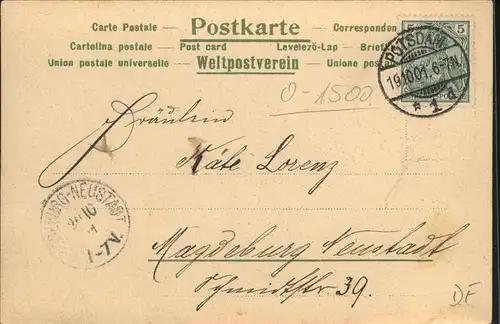 Carte Postale — Postkarte — Corresponden
Cartolina postale — Post card — Levelezö-Lap — Brief
Union postale universelle — Weltpostverein — Unione pos
5 5
POTSDAM
19.10.01.6-7N.
* 1 d
0-1500
Fräulein
Käte Lorenz
BURG-NEUSTADT
10
1-7N.
Magdeburg Neustadt
Schmidtstr. 39.
DF